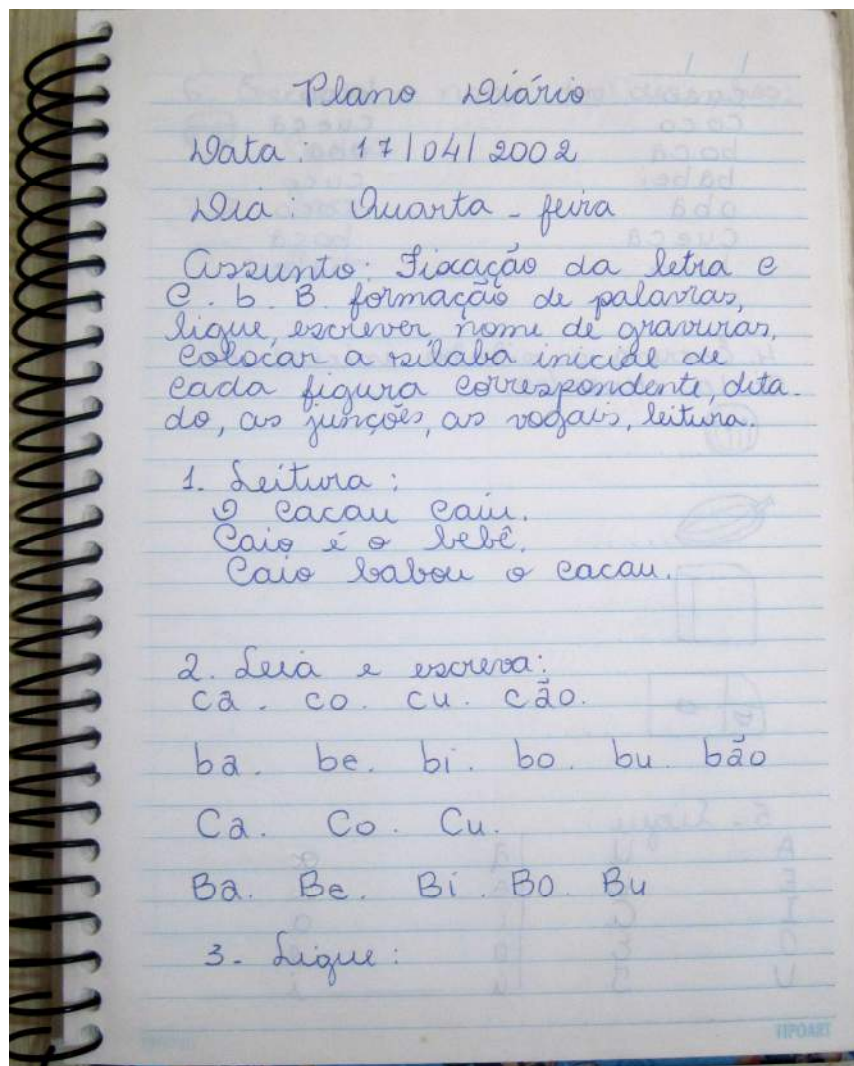 Plano Diário
Data: 17/04/2002
Dia: Quarta-feira
Assunto: Fixação da letra c
C. b. B. formação de palavras,
ligue, escrever nome de gravuras,
colocar a sílaba inicial de
cada figura correspondente, dita-
do, as junções, as vogais, leitura.
1. Leitura:
O cacau caiu.
Caio é o bebê.
Caio babou o cacau.
2. Leia e escreva:
ca. co. cu. cão.
ba. be. bi. bo. bu. bão
Ca. Co. Cu.
Ba. Be. Bi. Bo. Bu
3- Ligue:
TIPOART